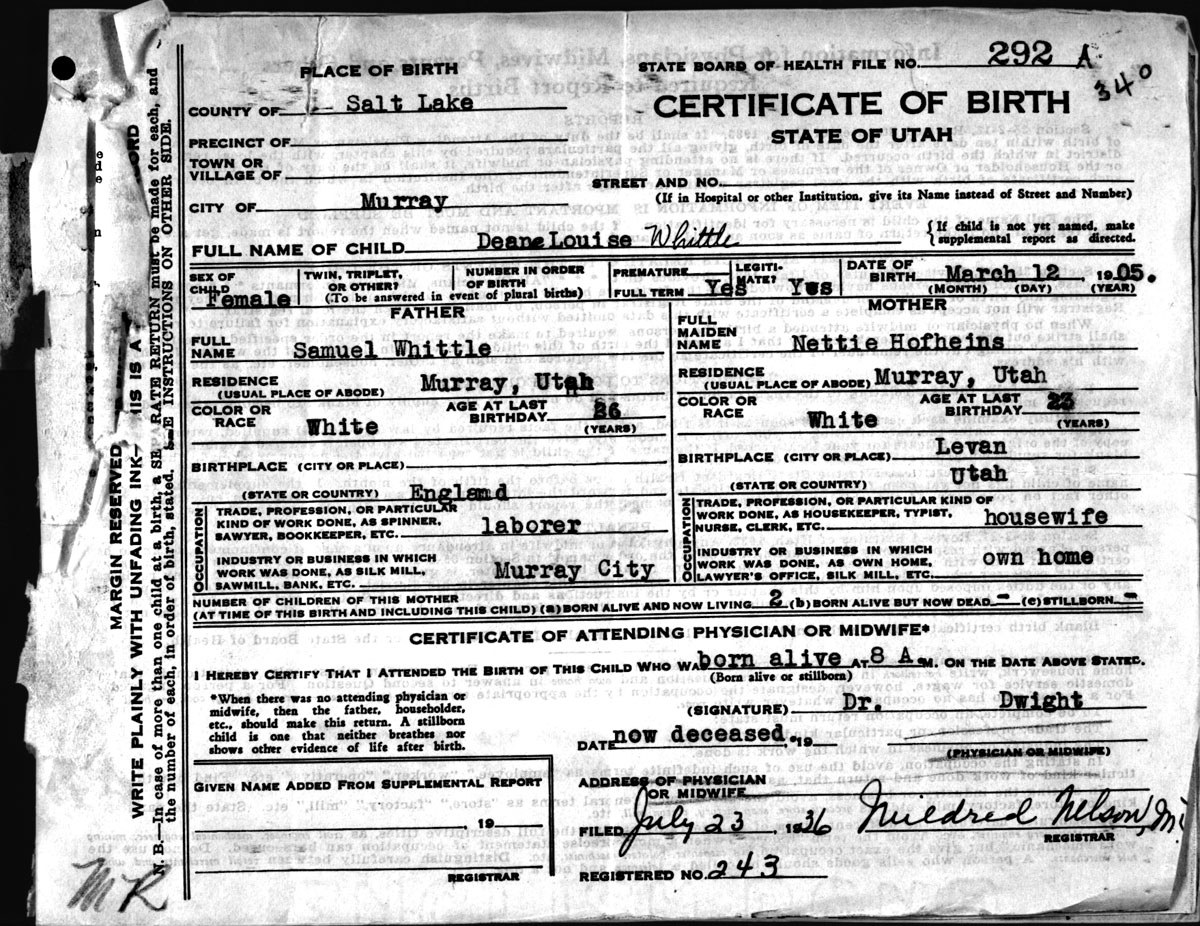 292 A
340
PLACE OF BIRTH
STATE BOARD OF HEALTH FILE NO.
COUNTY OF Salt Lake
CERTIFICATE OF BIRTH
STATE OF UTAH
PRECINCT OF
TOWN OR VILLAGE OF
STREET AND NO.
(If in Hospital or other Institution, give its Name instead of Street and Number)
CITY OF Murray
FULL NAME OF CHILD Deane Louise Whittle
{If child is not yet named, make supplemental report as directed.
SEX OF CHILD Female
TWIN, TRIPLET, OR OTHER?
NUMBER IN ORDER OF BIRTH
(To be answered in event of plural births)
PREMATURE
FULL TERM Yes
LEGITIMATE? Yes
DATE OF BIRTH March 12 1905.
(MONTH) (DAY) (YEAR)
FATHER
FULL NAME Samuel Whittle
RESIDENCE (USUAL PLACE OF ABODE) Murray, Utah
COLOR OR RACE White
AGE AT LAST BIRTHDAY 26 (YEARS)
BIRTHPLACE (CITY OR PLACE)
(STATE OR COUNTRY) England
OCCUPATION
TRADE, PROFESSION, OR PARTICULAR KIND OF WORK DONE, AS SPINNER, SAWYER, BOOKKEEPER, ETC. laborer
INDUSTRY OR BUSINESS IN WHICH WORK WAS DONE, AS SILK MILL, SAWMILL, BANK, ETC. Murray City
MOTHER
FULL MAIDEN NAME Nettie Hofheins
RESIDENCE (USUAL PLACE OF ABODE) Murray, Utah
COLOR OR RACE White
AGE AT LAST BIRTHDAY 23 (YEARS)
BIRTHPLACE (CITY OR PLACE) Levan
(STATE OR COUNTRY) Utah
OCCUPATION
TRADE, PROFESSION, OR PARTICULAR KIND OF WORK DONE, AS HOUSEKEEPER, TYPIST, NURSE, CLERK, ETC. housewife
INDUSTRY OR BUSINESS IN WHICH WORK WAS DONE, AS OWN HOME, LAWYER'S OFFICE, SILK MILL, ETC. own home
NUMBER OF CHILDREN OF THIS MOTHER
(AT TIME OF THIS BIRTH AND INCLUDING THIS CHILD) (a) BORN ALIVE AND NOW LIVING 2 (b) BORN ALIVE BUT NOW DEAD - (c) STILLBORN -
CERTIFICATE OF ATTENDING PHYSICIAN OR MIDWIFE*
I HEREBY CERTIFY THAT I ATTENDED THE BIRTH OF THIS CHILD WHO WAS born alive AT 8 A M. ON THE DATE ABOVE STATED.
(Born alive or stillborn)
*When there was no attending physician or
midwife, then the father, householder,
etc., should make this return. A stillborn
child is one that neither breathes nor
shows other evidence of life after birth.
(SIGNATURE) Dr. Dwight
DATE now deceased. 19
(PHYSICIAN OR MIDWIFE)
GIVEN NAME ADDED FROM SUPPLEMENTAL REPORT
, 19
REGISTRAR
ADDRESS OF PHYSICIAN OR MIDWIFE
FILED July 23, 1936 Mildred Nelson
REGISTRAR
REGISTERED NO. 243
MARGIN RESERVED
WRITE PLAINLY WITH UNFADING INK—
HIS IS A
ORD
N. B.—In case of more than one child at a birth, a SEPARATE RETURN must be made for each, and
the number of each, in order of birth, stated. SEE INSTRUCTIONS ON OTHER SIDE.
MR